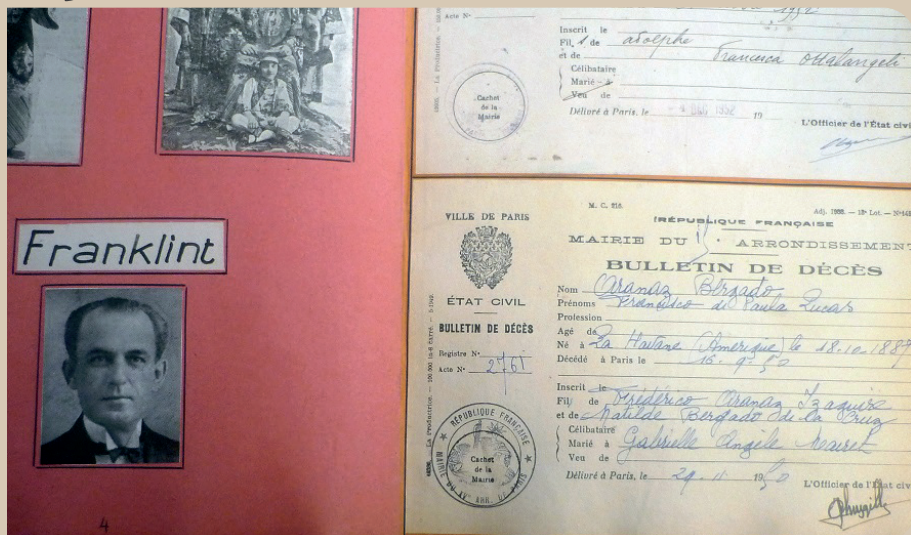 Acte N°
Inscrit le
Fil s de adolphe
et de Francesca Ottalangeli
Célibataire
Marié à
Veu de
Cachet
de la
Mairie
Délivré à Paris, le 4 DEC 1952 19
L'Officier de l'État civi
Franklint
4
VILLE DE PARIS
ÉTAT CIVIL
BULLETIN DE DÉCÈS
Registre N°
Acte N° 2761
RÉPUBLIQUE FRANÇAISE
MAIRIE DU
ARR. DE PARIS
Cachet
de la
Mairie
M. C. 216.
RÉPUBLIQUE FRANÇAISE
MAIRIE DU ARRONDISSEMENT
BULLETIN DE DÉCÈS
Nom Aranaz Bergado
Prénoms Francisco de Paula Lucas
Profession
Agé de
Né à La Havane (Amérique) le 18.10.1889
Décédé à Paris le 16. 9. 50
Inscrit le
Fil s de Frédérico Aranaz Izaguire
et de Matilde Bergado de la Cruz
Célibataire
Marié à Gabrielle Angèle
Veu de
Délivré à Paris, le 29. 11 1950
L'Officier de l'État civ